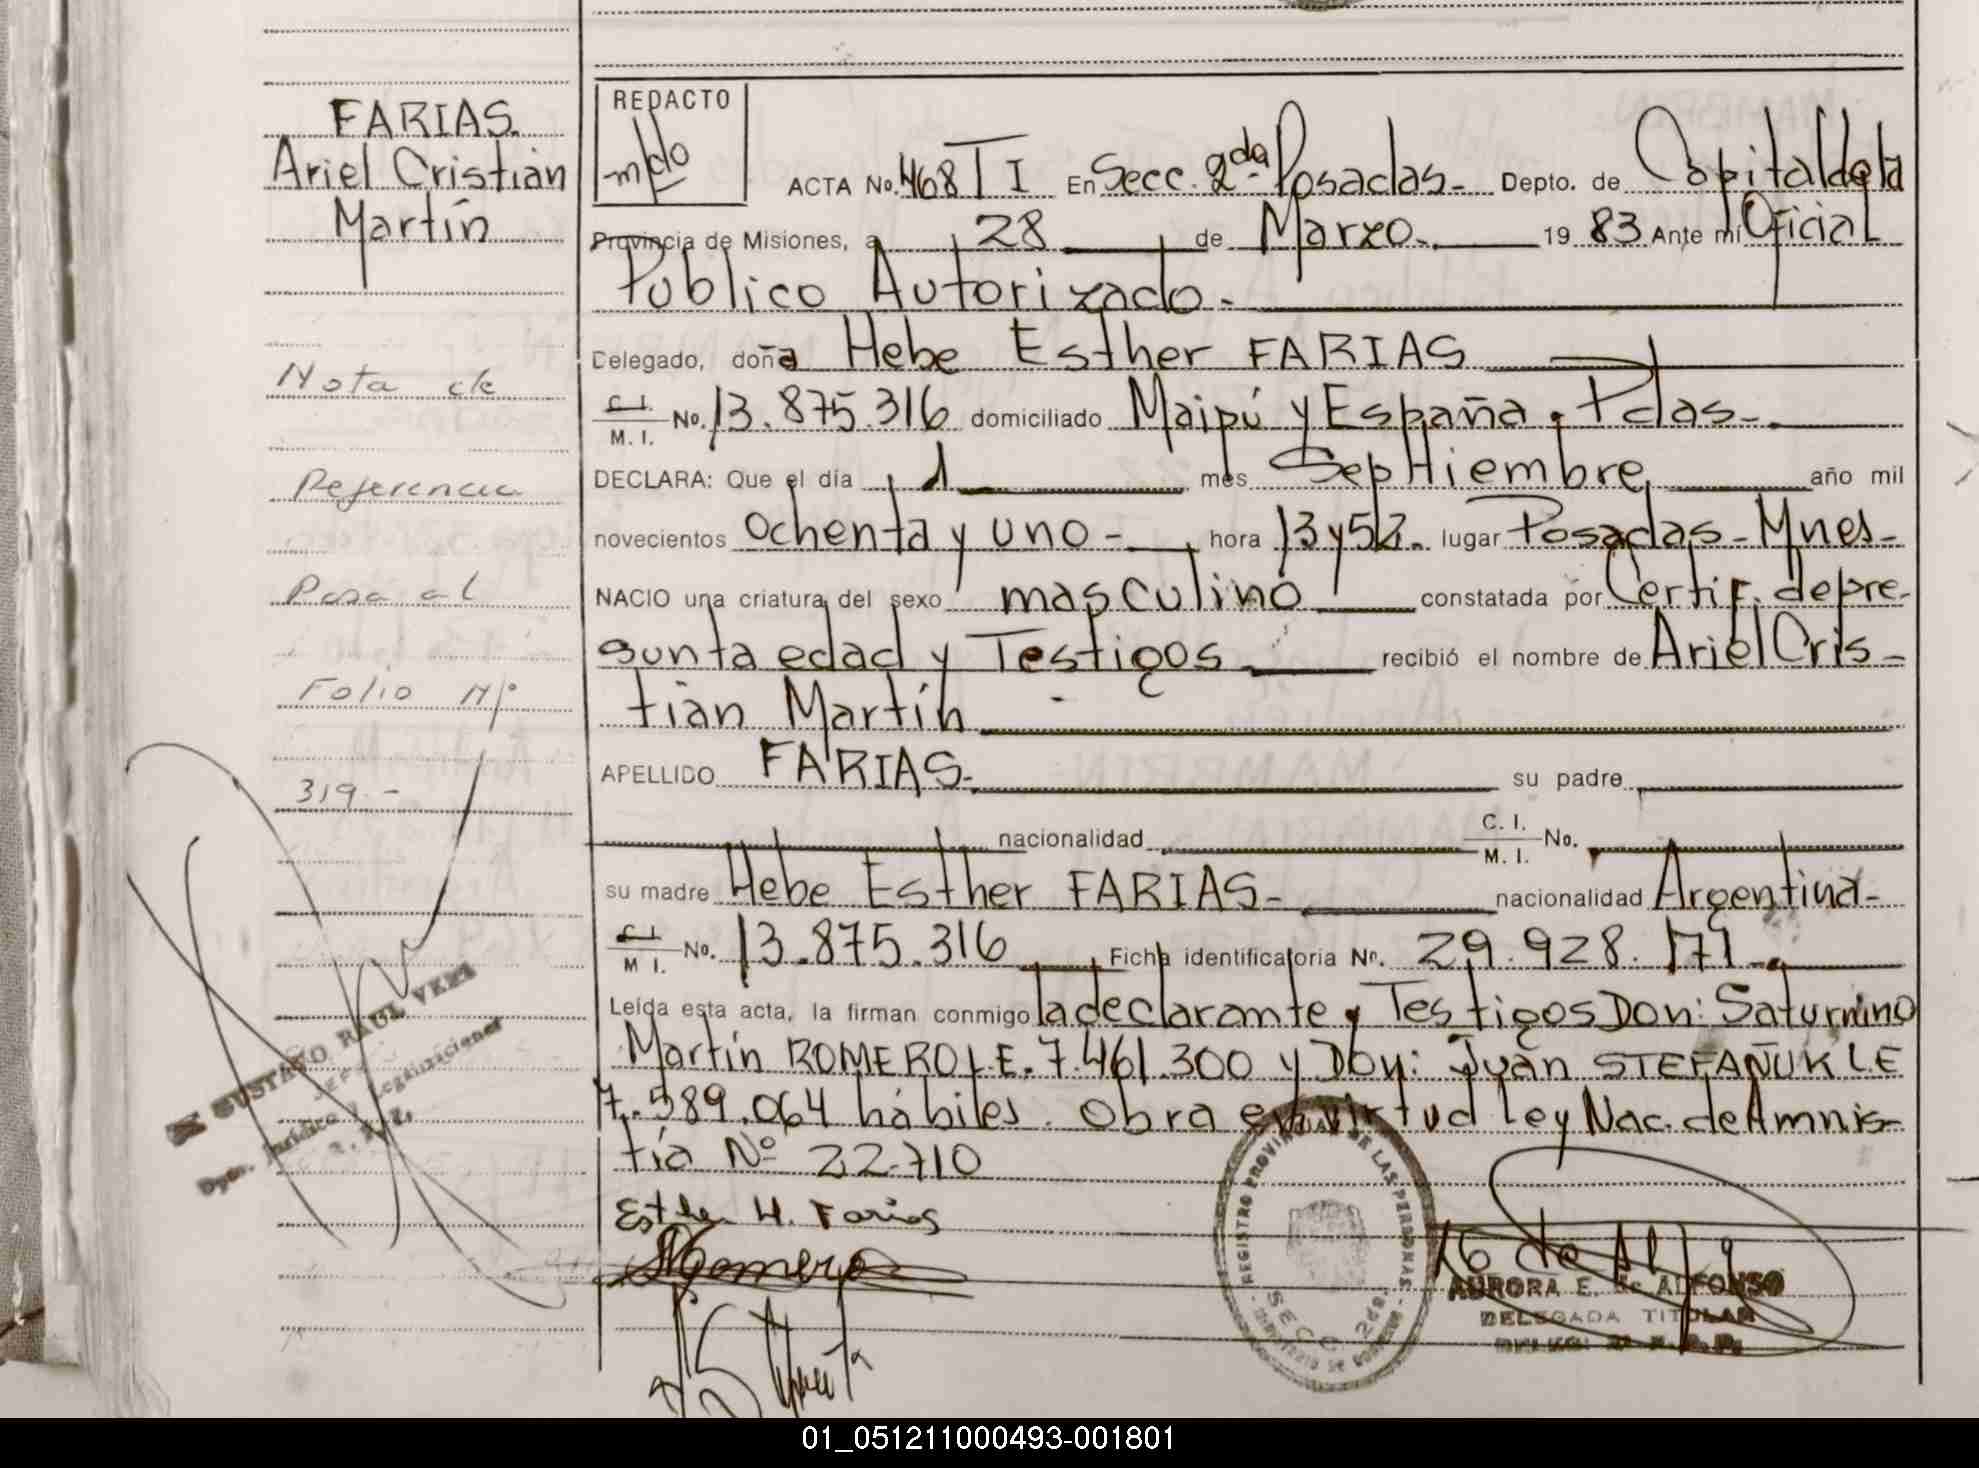 FARIAS.
Ariel Cristian
Martín
Nota de
Referencia
Pasa al
Folio Nº
319.-
GUSTAVO RAUL VERA
JEFE
Dpto. Jurídico y Legalizaciones
REDACTO
mdo
ACTA No. 468 T I En Secc. 2da. Posadas.- Depto. de Capital de la
Provincia de Misiones, a 28 de Marzo. 19 83 Ante mí Oficial
Público Autorizado.-
Delegado, doña Hebe Esther FARIAS
C.I. M. I. No. 13.875.316 domiciliado Maipú y España. Pdas.-
DECLARA: Que el día 1 mes Septiembre año mil
novecientos ochenta y uno- hora 13 y 52. lugar Posadas-Mnes-
NACIO una criatura del sexo masculino constatada por Certif. de pre-
sunta edad y Testigos recibió el nombre de Ariel Cris-
tian Martín
APELLIDO FARIAS. su padre
nacionalidad C. I. M. I. No.
su madre Hebe Esther FARIAS- nacionalidad Argentina-
C.I. M I. No. 13.875.316 Ficha identificatoria Nº. 29.928.171
Leída esta acta, la firman conmigo la declarante y Testigos Don: Saturnino
Martín ROMERO L.E. 7.461.300 y Don: Juan STEFAÑUK LE
7.589.064 hábiles. Obra en virtud Ley Nac. de Amnis-
tía Nº 22.710
Esther H. Farias
SMRomero
REGISTRO PROVINCIAL DE LAS PERSONAS
SECC. 2da.
AURORA E. de ALFONSO
DELEGADA TITULAR
01_051211000493-001801